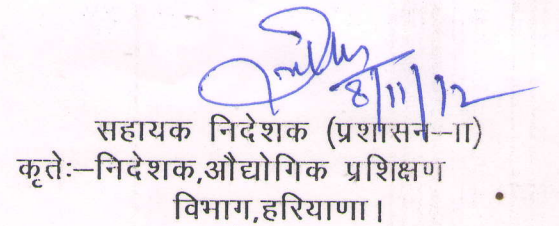 8/11/12
सहायक निदेशक (प्रशासन–II)
कृतेः–निदेशक,औद्योगिक प्रशिक्षण
विभाग,हरियाणा।